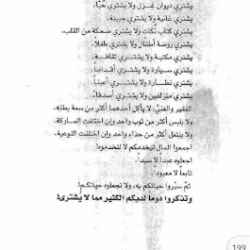 يشتري ديوان غزل ولا يشتري حبًا.
يشتري غانية ولا يشتري حبيبة.
يشتري كتاب نكت ولا يشتري ضحكة من القلب.
يشتري روضة أطفال ولا يشتري طفلًا.
يشتري مكتبة ولا يشتري ثقافة.
يشتري سيارة ولا يشتري أقدامًا.
يشتري نظارة ولا يشتري
يشتري متزلفين ولا يشتري أصدقاء.
الفقير والغنيّ: لا يأكل أحدهما أكثر من سعة بطنه.
ولا يلبس أكثر من ثوب واحد وإن اختلفت الماركة.
ولا ينتعل أكثر من حذاء واحد وإن اختلفت النوعية.
اجمعوا المال ليخدمكم لا لتخدموه
اجعلوه عبدًا لا سيدًا.
تابعًا لا معبودًا.
ثمّ سيّروا حياتكم به، ولا تجعلوه حياتكم!
وتذكروا دومًا لديكم الكثير مما لا يُشترى!
199